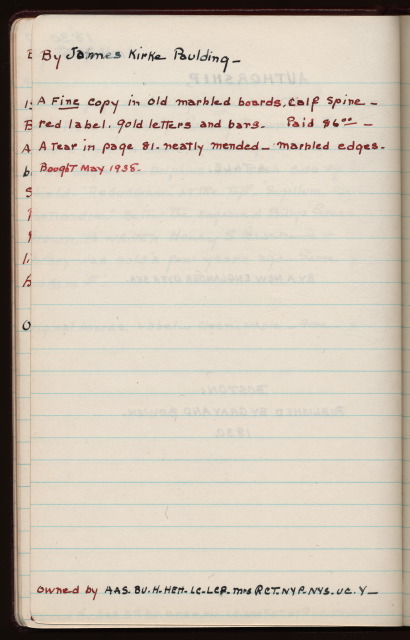 By James Kirke Paulding —
A Fine copy in old marbled boards, calf spine —
red label. gold letters and bars. Paid $6.00 —
A Tear in page 81. neatly mended — marbled edges.
Bought May 1938.
owned by AAS. BU. H. HEH. LC. LCP. MRS RCT. NYP. NYS. UC. Y —